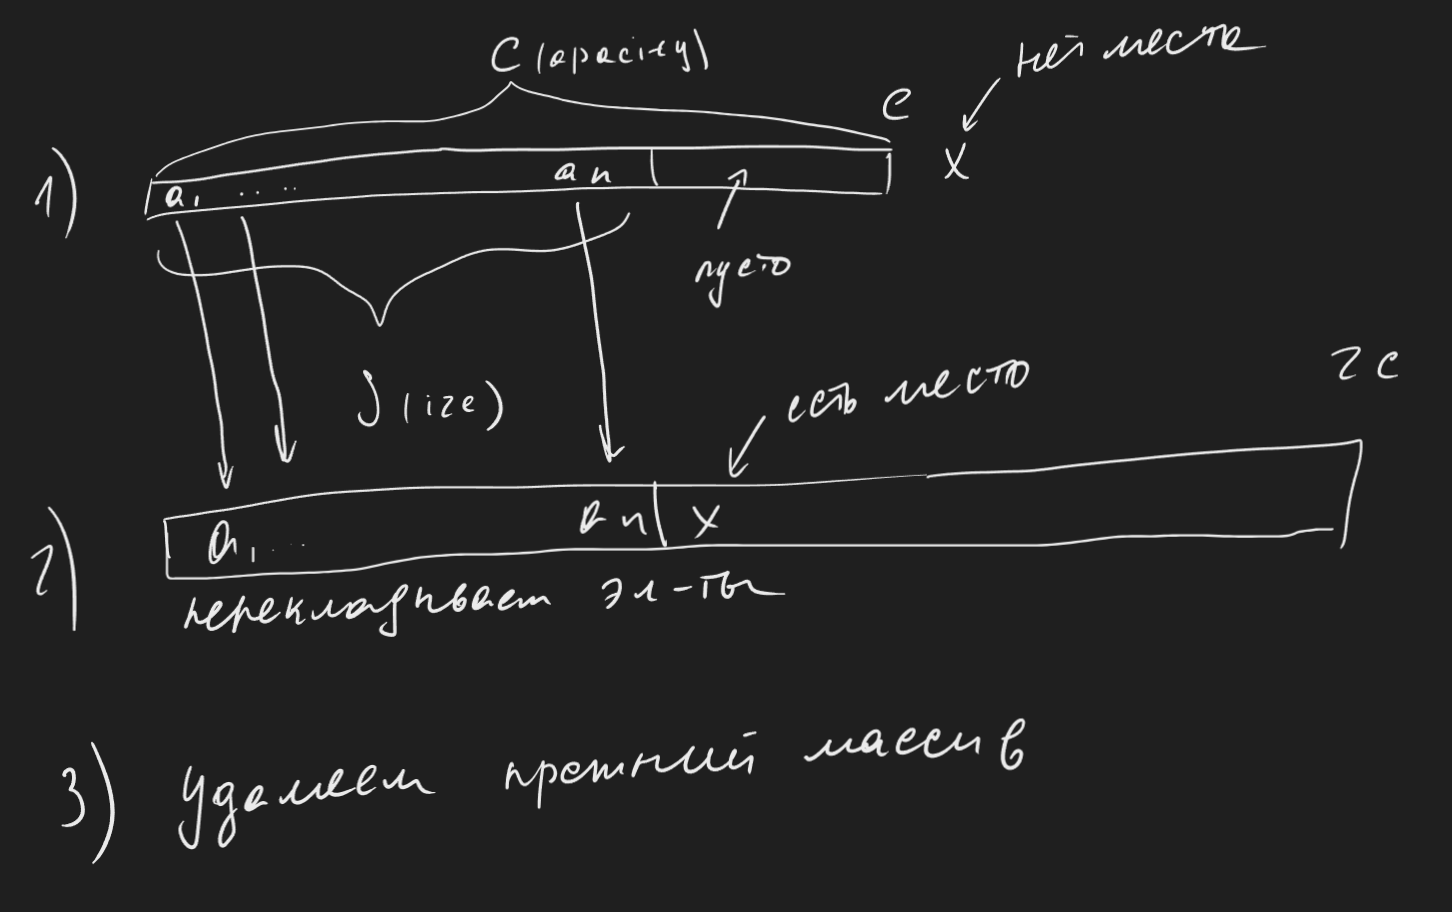 C (apacity)
нет места
C
1)
a₁ .....
an
X
пусто
S (ize)
есть место
2C
2)
a₁ ...
an
X
перекладываем эл-ты
3) Удаляем прежний массив